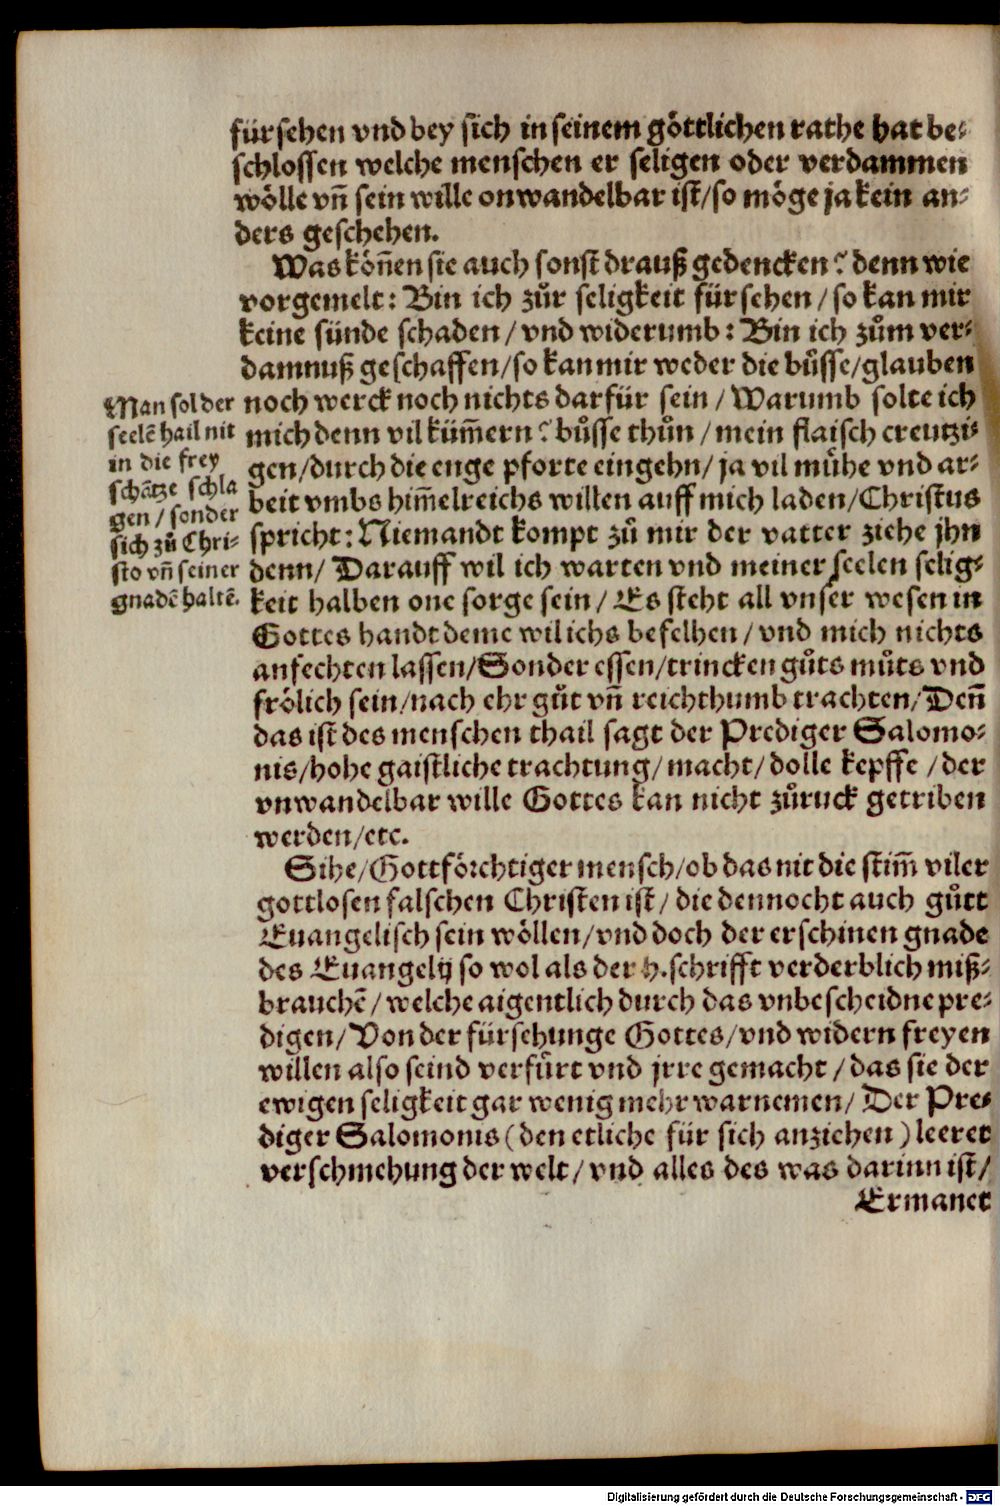 fürsehen vnd bey sich in seinem göttlichen rathe hat be⸗
schlossen welche menschen er seligen oder verdammen
wölle vn̄ sein wille onwandelbar ist/so möge ja kein an⸗
ders geschehen.
Was kön̄en sie auch sonst drauß gedencken? denn wie
vorgemelt: Bin ich zůr seligkeit fürsehen/so kan mir
keine sünde schaden/vnd widerumb: Bin ich zům ver⸗
damnuß geschaffen/so kan mir weder die bůsse/glauben
noch werck noch nichts darfür sein/Warumb solte ich
mich denn vil küm̄ern? bůsse thůn/mein flaisch creutzi⸗
gen/durch die enge pforte eingehn/ja vil mühe vnd ar⸗
beit vmbs him̄elreichs willen auff mich laden/Christus
spricht: Niemandt kompt zů mir der vatter ziehe jhn
denn/Darauff wil ich warten vnd meiner seelen selig⸗
keit halben one sorge sein/Es steht all vnser wesen in
Gottes handt deme wil ichs befelhen/vnd mich nichts
anfechten lassen/Sonder essen/trincken gůts můts vnd
frölich sein/nach ehr gůt vn̄ reichthumb trachten/Den̄
das ist des menschen thail sagt der Prediger Salomo⸗
nis/hohe gaistliche trachtung/macht/dolle kepffe/der
vnwandelbar wille Gottes kan nicht zůruck getriben
werden/etc.
Sihe/Gottförchtiger mensch/ob das nit die stim̄ viler
gottlosen falschen Christen ist/die dennocht auch gůtt
Euangelisch sein wöllen/vnd doch der erschinen gnade
des Euangelij so wol als der h.schrifft verderblich miß⸗
brauchē/welche aigentlich durch das vnbescheidne pre⸗
digen/Von der fürsehunge Gottes/vnd widern freyen
willen also seind verfůrt vnd jrre gemacht/das sie der
ewigen seligkeit gar wenig mehr warnemen/Der Pre⸗
diger Salomonis (den etliche für sich anziehen) leeret
verschmehung der welt/vnd alles des was darinn ist/
Ermanet
Man sol der
seelē hail nit
in die frey
schātze schla
gen/sonder
sich zů Chri⸗
sto vn̄ seiner
gnadē haltē.
Digitalisierung gefördert durch die Deutsche Forschungsgemeinschaft - DFG